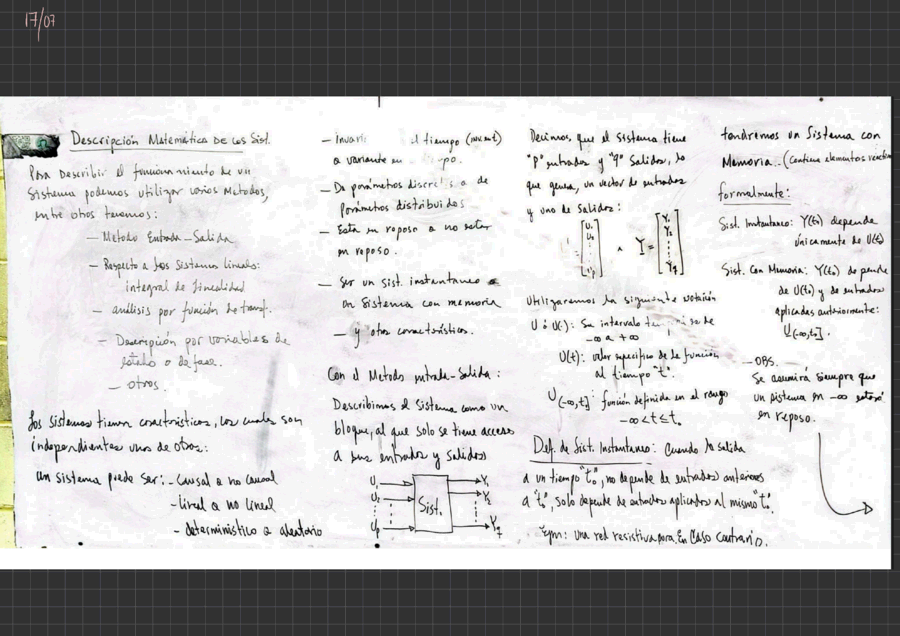 17/07
Descripción Matemática de los Sist.
Para describir el funcionamiento de un
Sistema podemos utilizar varios Metodos,
entre otros tenemos:
— Metodo Entrada-Salida
— Respecto a los Sistemas lineales:
integral de linealidad
— análisis por función de transf.
— Descripción por variables de
estado o de fase.
— otros.
Los sistemas tienen características, las cuales son
independientes unos de otros:
un sistema puede ser: - causal o no causal
- lineal o no lineal
- determinístico o aleatorio
— Invari el tiempo (inv. en t)
o variante en po.
— De parámetros discre s o de
Parámetros distribuidos
— Esta en reposo o no estar
en reposo.
— Ser un sist. instantaneo o
un Sistema con memoria
— y otros caracteristicos.
Con el Metodo entrada-Salida:
Describimos el Sistema como un
bloque, al que solo se tiene acceso
a sus entradas y salidas
U1 Y1
U2 Sist. Y2
Up Yq
Decimos, que el sistema tiene
"P" entradas y "q" Salidas, lo
que genera, un vector de entradas
y uno de salidas:
= [U1 U2 Up] ^ Y = [Y1 Y2 Yq]
Utilizaremos la siguiente notación
U ó U(·): Su intervalo se de
-∞ a +∞
U(t): valor especifico de la función
al tiempo "t".
U(-∞,t]: función definida en el rango
-∞ < t ≤ t.
Def. de Sist. Instantaneo: Cuando la salida
a un tiempo "t0", no depende de entradas anteriores
a "t0", solo depende de entradas aplicadas al mismo "t0".
Ejm: una red resistiva pura. En Caso Contrario,
tendremos un Sistema con
Memoria. (Contiene elementos reactivos
formalmente:
Sist. Instantaneo: Y(t0) depende
únicamente de U(t0)
Sist. Con Memoria: Y(t0) depende
de U(t0) y de entradas
aplicadas anteriormente:
U(-∞,t0].
— OBS.
Se asumirá siempre que
un sistema en -∞ estará
en reposo.